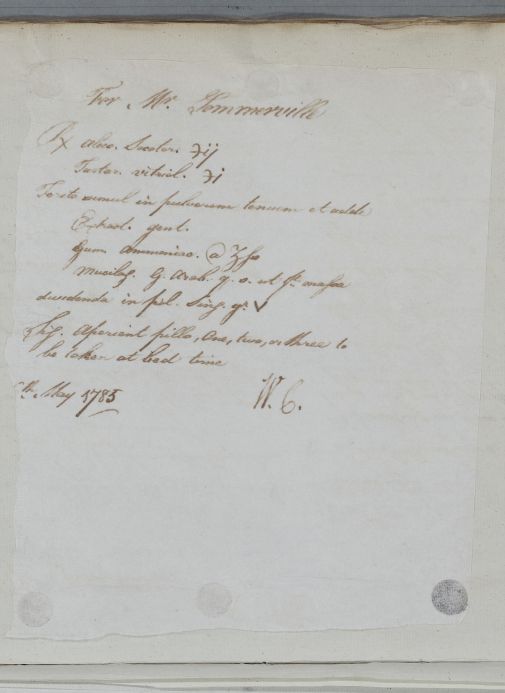 For Mr. Sommerville
℞ Aloe. Socotor. ʒij
Tartar. vitriol. ʒj
Terito simul in pulverem tenuem et adde
Extract. gent.
Gum Ammoniac. a ʒſs
Mucilag. G. Arab. q. s. ut ft. massa
dividenda in pil. sing. gr. V
Sig. Aperient pills, one, two, or three to
be taken at bed time
th. May 1785
W. C.